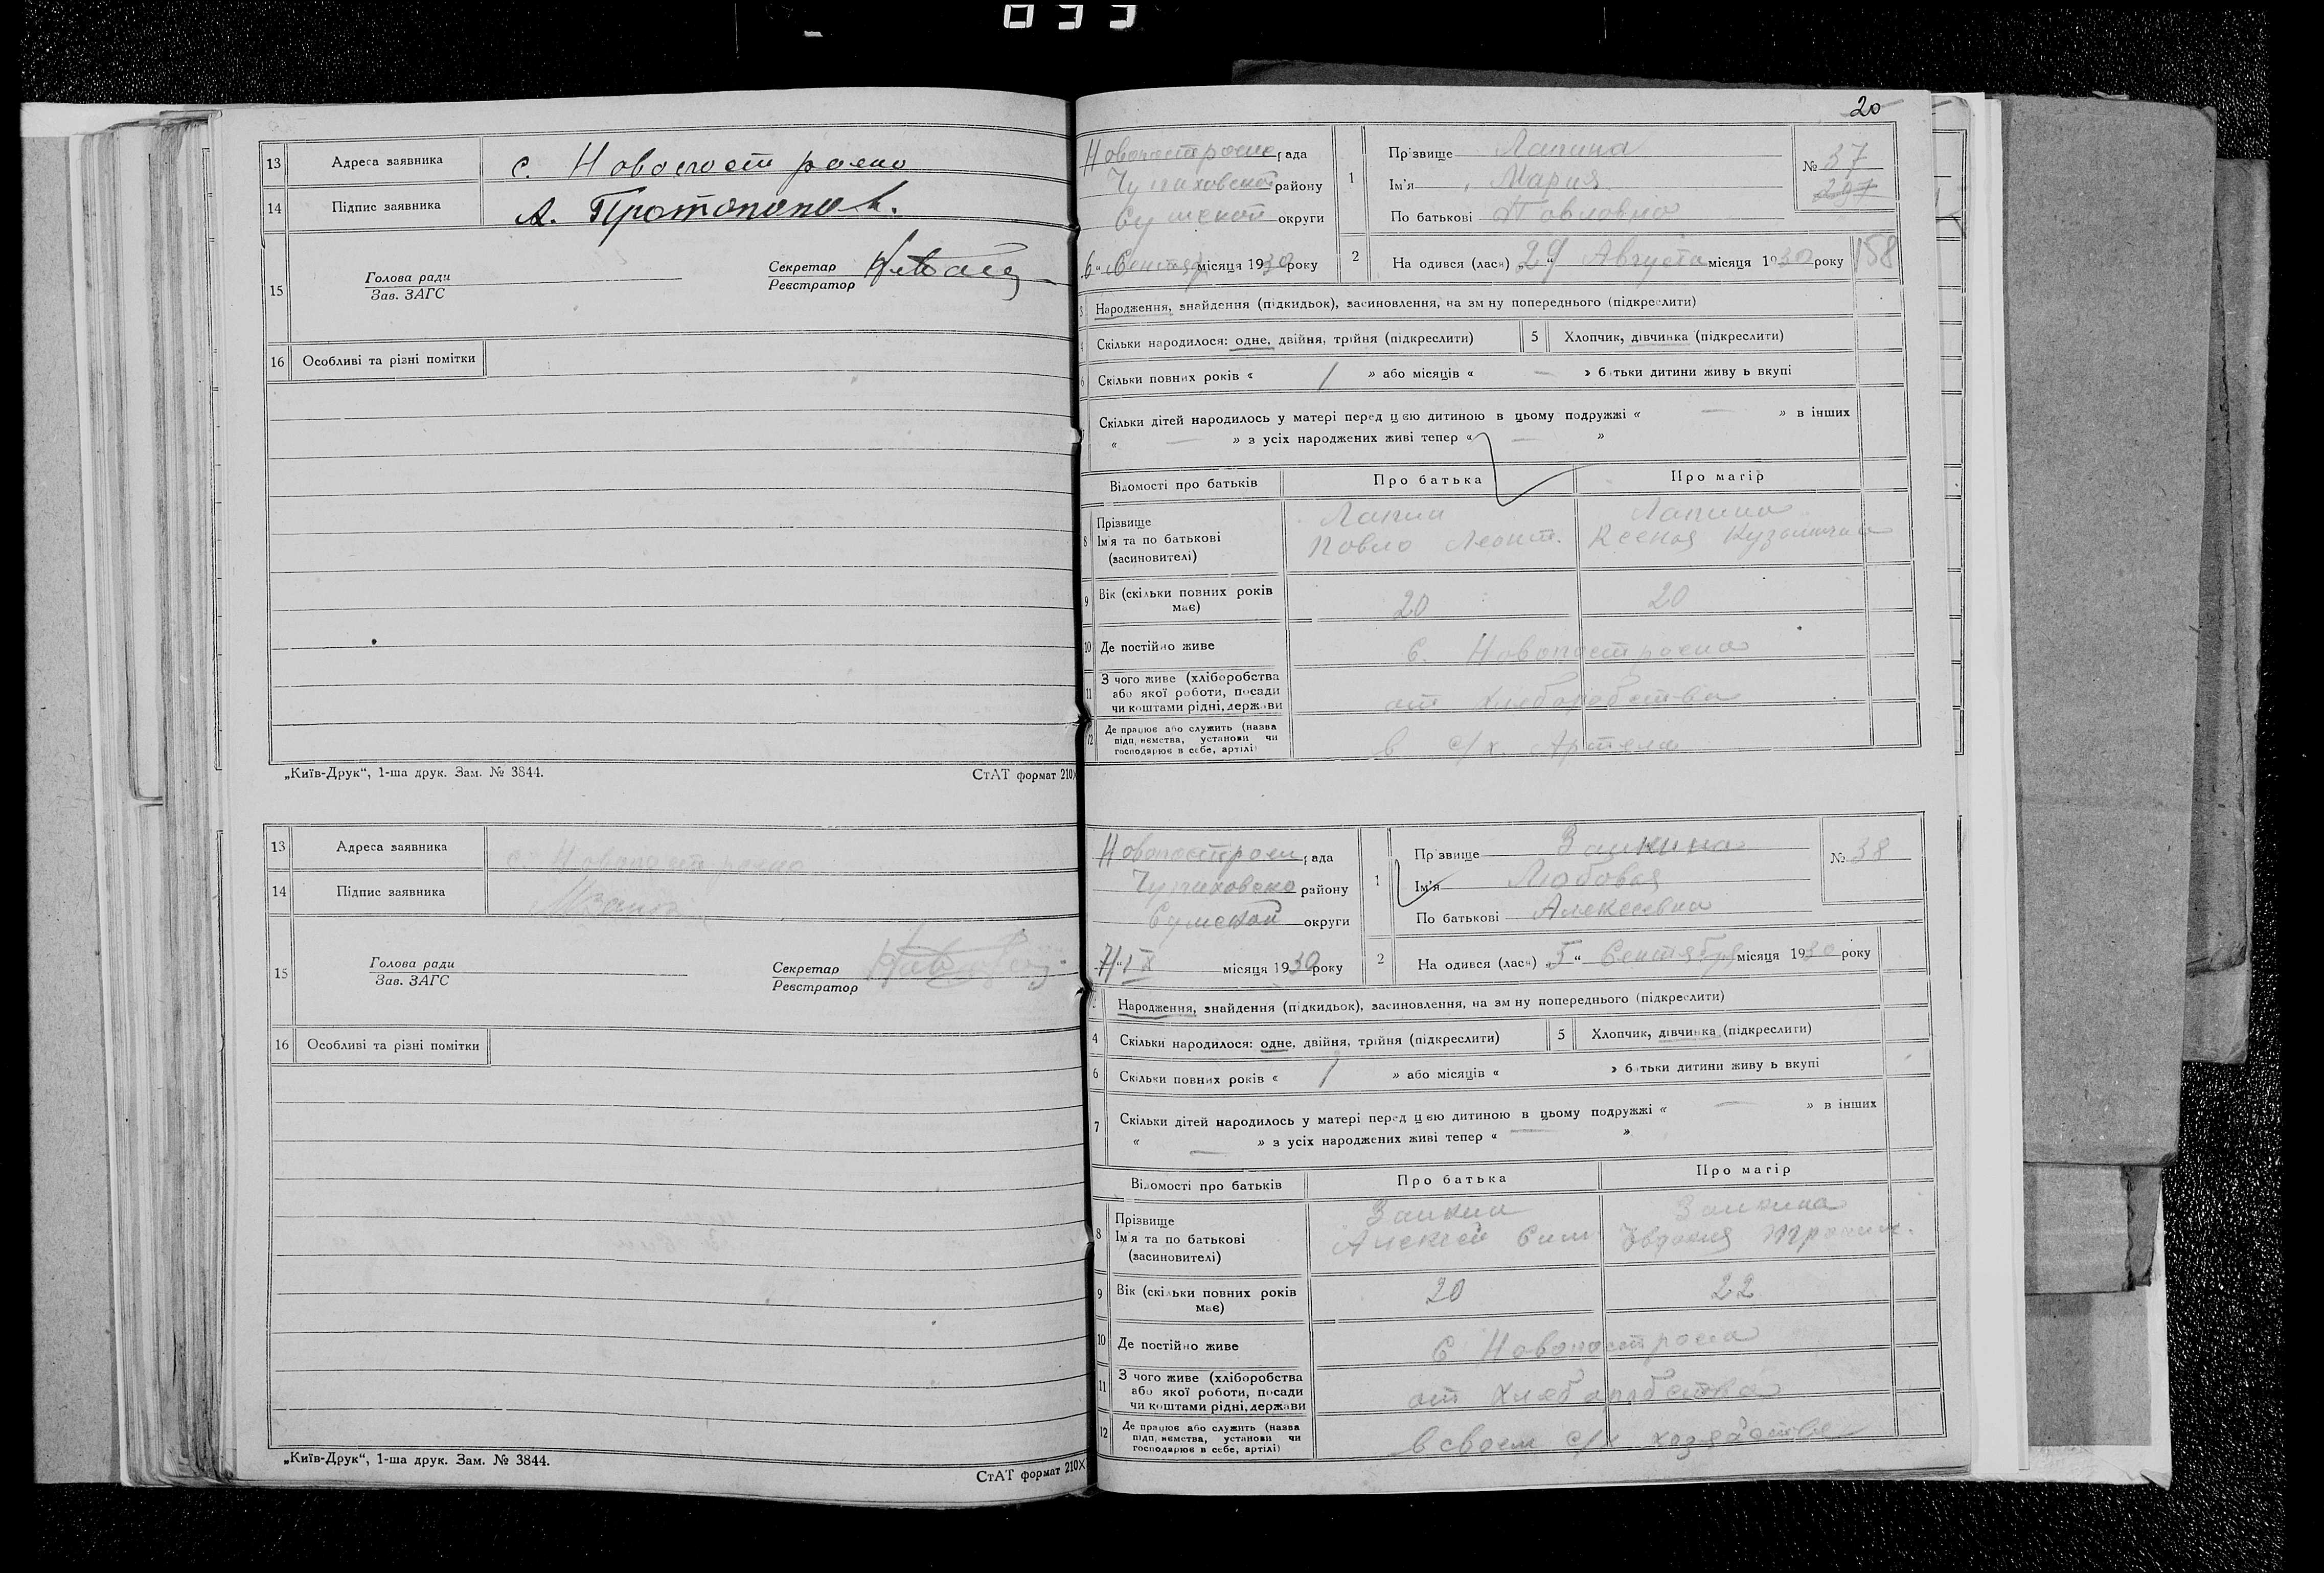 13 Адреса заявника с. Новопостроено
14 Підпис заявника А. Протопопов.
15 Голова ради
Зав. ЗАГС
Секретар
Реєстратор
16 Особливі та різні помітки
„Київ-Друк“, 1-ша друк. Зам. № 3844.
СтАТ формат 210X
13 Адреса заявника с. Новопостроено
14 Підпис заявника
15 Голова ради
Зав. ЗАГС
Секретар
Реєстратор
16 Особливі та різні помітки
„Київ-Друк“, 1-ша друк. Зам. № 3844.
СтАТ формат 210X
20
Новопостроено рада
району
Сумской округи
6 “ Сентяб місяця 1930 року
1 Прізвище Лапина
Ім'я Мария
По батькові Павловна
№ 37
297
2 Народився (лась) „29“ Августа місяця 1930 року
158
3 Народження, знайдення (підкидьок), засиновлення, на зміну попереднього (підкреслити)
4 Скільки народилося: одне, двійня, трійня (підкреслити)
5 Хлопчик, дівчинка (підкреслити)
6 Скільки повних років « 1 » або місяців « — » батьки дитини живуть вкупі
7 Скільки дітей народилось у матері перед цією дитиною в цьому подружжі « — » в інших
« — » з усіх народжених живі тепер « — »
Відомості про батьків Про батька Про матір
8 Прізвище Лапин Лапина
Ім'я та по батькові Павло Леонт. Ксения Кузьминична
(засиновителі)
9 Вік (скільки повних років має) 20 20
10 Де постійно живе С. Новопостроено
11 З чого живе (хліборобства
або якої роботи, посади
чи коштами рідні, держави от хлеборобства
12 Де працює або служить (назва
підприємства, установи чи
господарює в себе, артілі) в с/х. Артели
Новопостроен рада
району
Сумской округи
7 “ IX місяця 1930 року
1 Прізвище Заикина
Ім'я Любовья
По батькові Алексеевна
№ 38
2 Народився (лась) „5“ Сентября місяця 1930 року
Народження, знайдення (підкидьок), засиновлення, на зміну попереднього (підкреслити)
4 Скільки народилося: одне, двійня, трійня (підкреслити)
5 Хлопчик, дівчинка (підкреслити)
6 Скільки повних років « 1 » або місяців « » батьки дитини живуть вкупі
7 Скільки дітей народилось у матері перед цією дитиною в цьому подружжі « — » в інших
« — » з усіх народжених живі тепер « — »
Відомості про батьків Про батька Про матір
8 Прізвище Заикин Заикина
Ім'я та по батькові Алексей Сим Евдокия
(засиновителі)
9 Вік (скільки повних років має) 20 22
10 Де постійно живе С Новопостроено
11 З чого живе (хліборобства
або якої роботи, посади
чи коштами рідні, держави от хлеборобства
12 Де працює або служить (назва
підприємства, установи чи
господарює в себе, артілі) в своем с/х хозяйстве